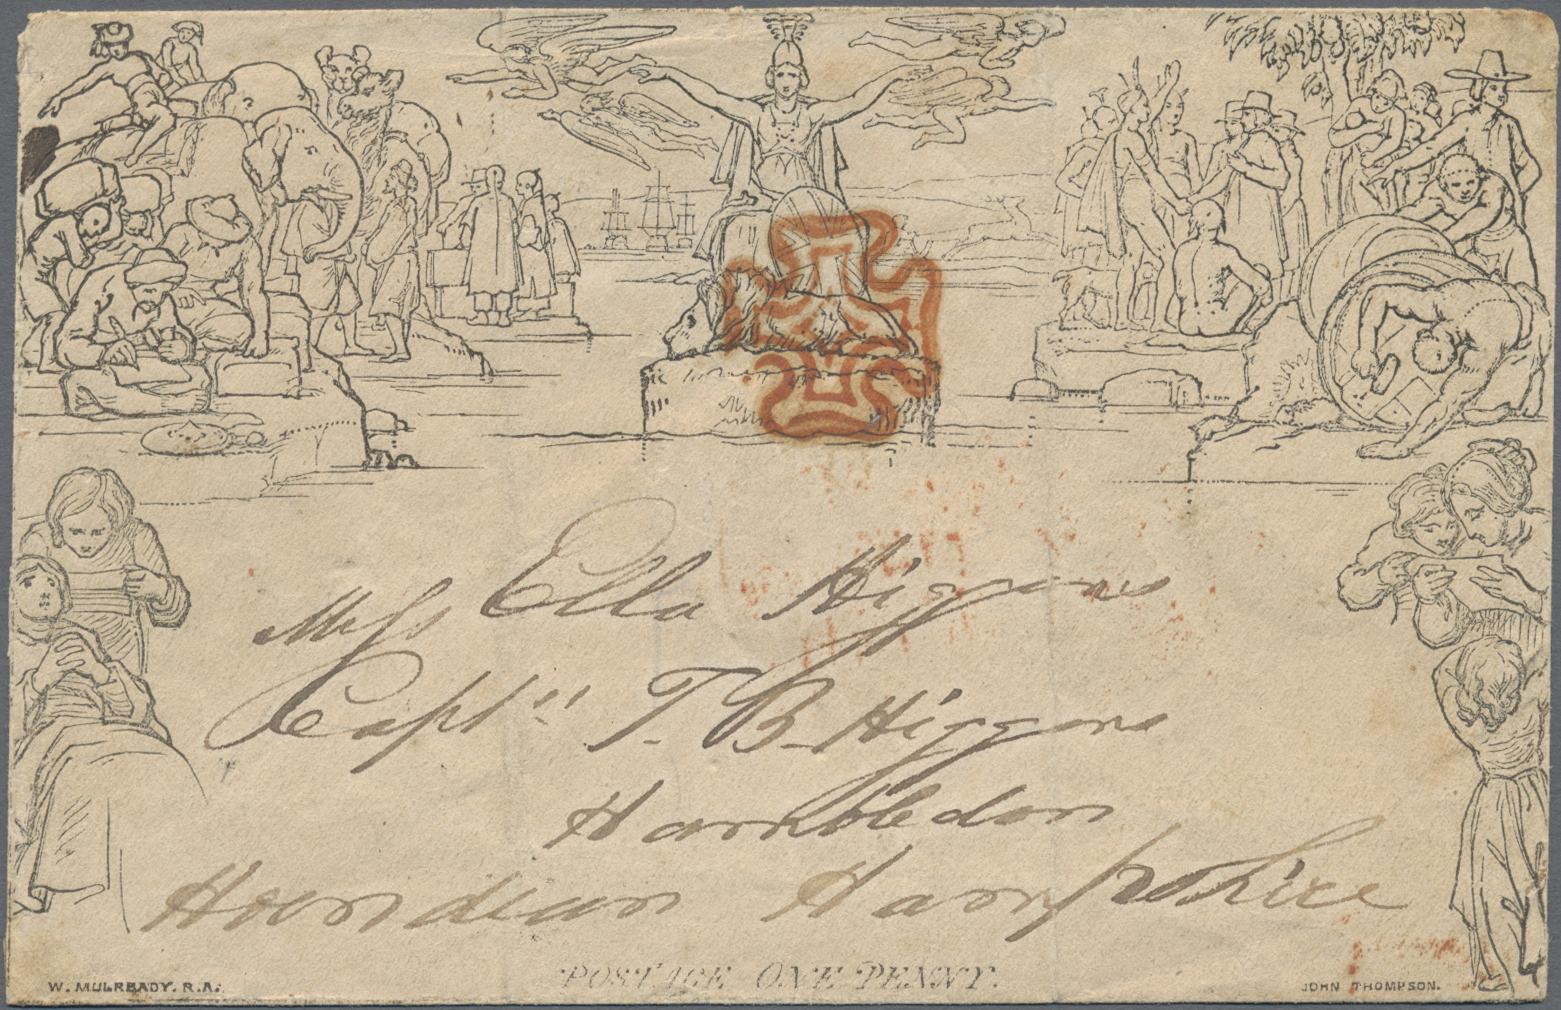 Miss Ella Higgens
Captn T. B. Higgens
Hambledon
Horndean Hampshire
POSTAGE ONE PENNY.
W. MULREADY. R.A.
JOHN THOMPSON.